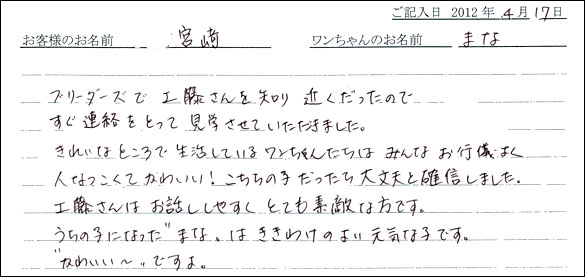 ご記入日 2012年 4月 17日
お客様のお名前 宮崎 ワンちゃんのお名前 まな
ブリーダーズで 工藤さんを知り 近くだったので
すぐ連絡をとって 見学させていただきました。
きれいなところで生活しているワンちゃんたちは みんなお行儀よく
人なつこくてかわいい！こちらの子だったら大丈夫と確信しました。
工藤さんは お話ししやすく とても素敵な方です。
うちの子になった"まな"は ききわけのよい元気な子です。
"かわいい〜"ですよ。